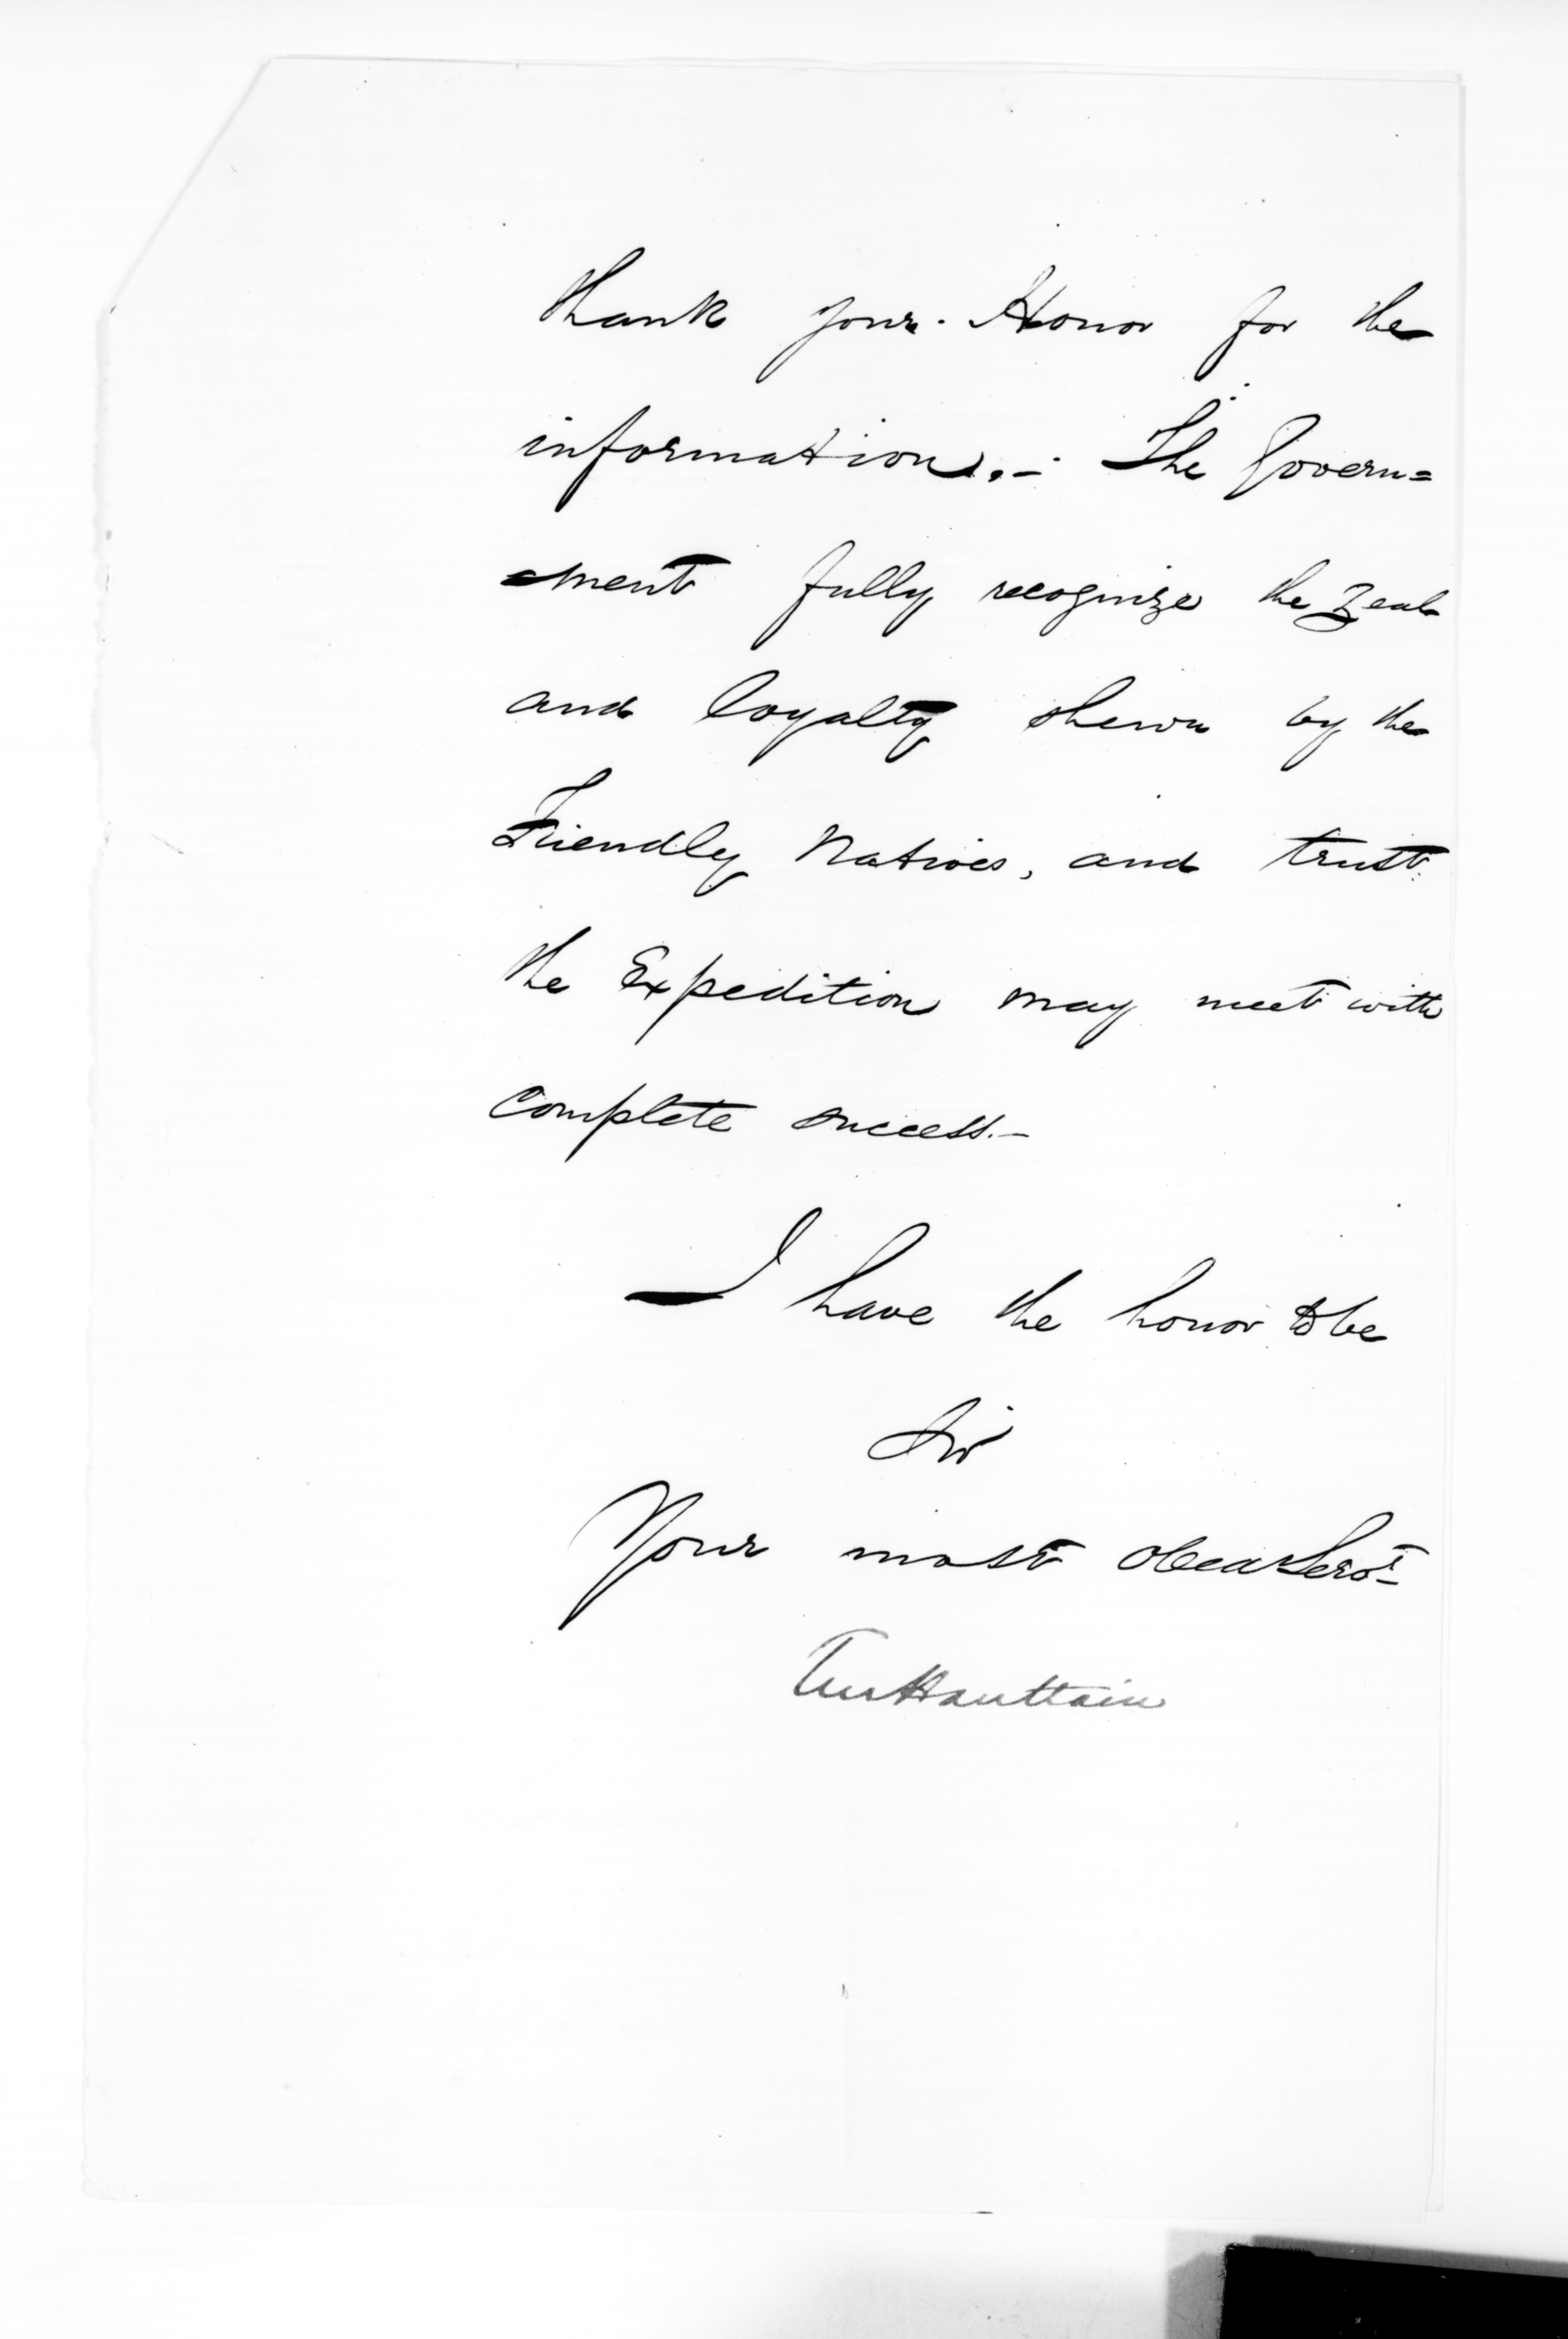 thank your Honor for the
information. - The Govern=
=ment fully recognize the zeal
and loyalty shewn by the
Friendly Natives, and trust
the Expedition may meet with
complete success. -
I have the honor to be
Sir
Your most obed Servt
Haultain